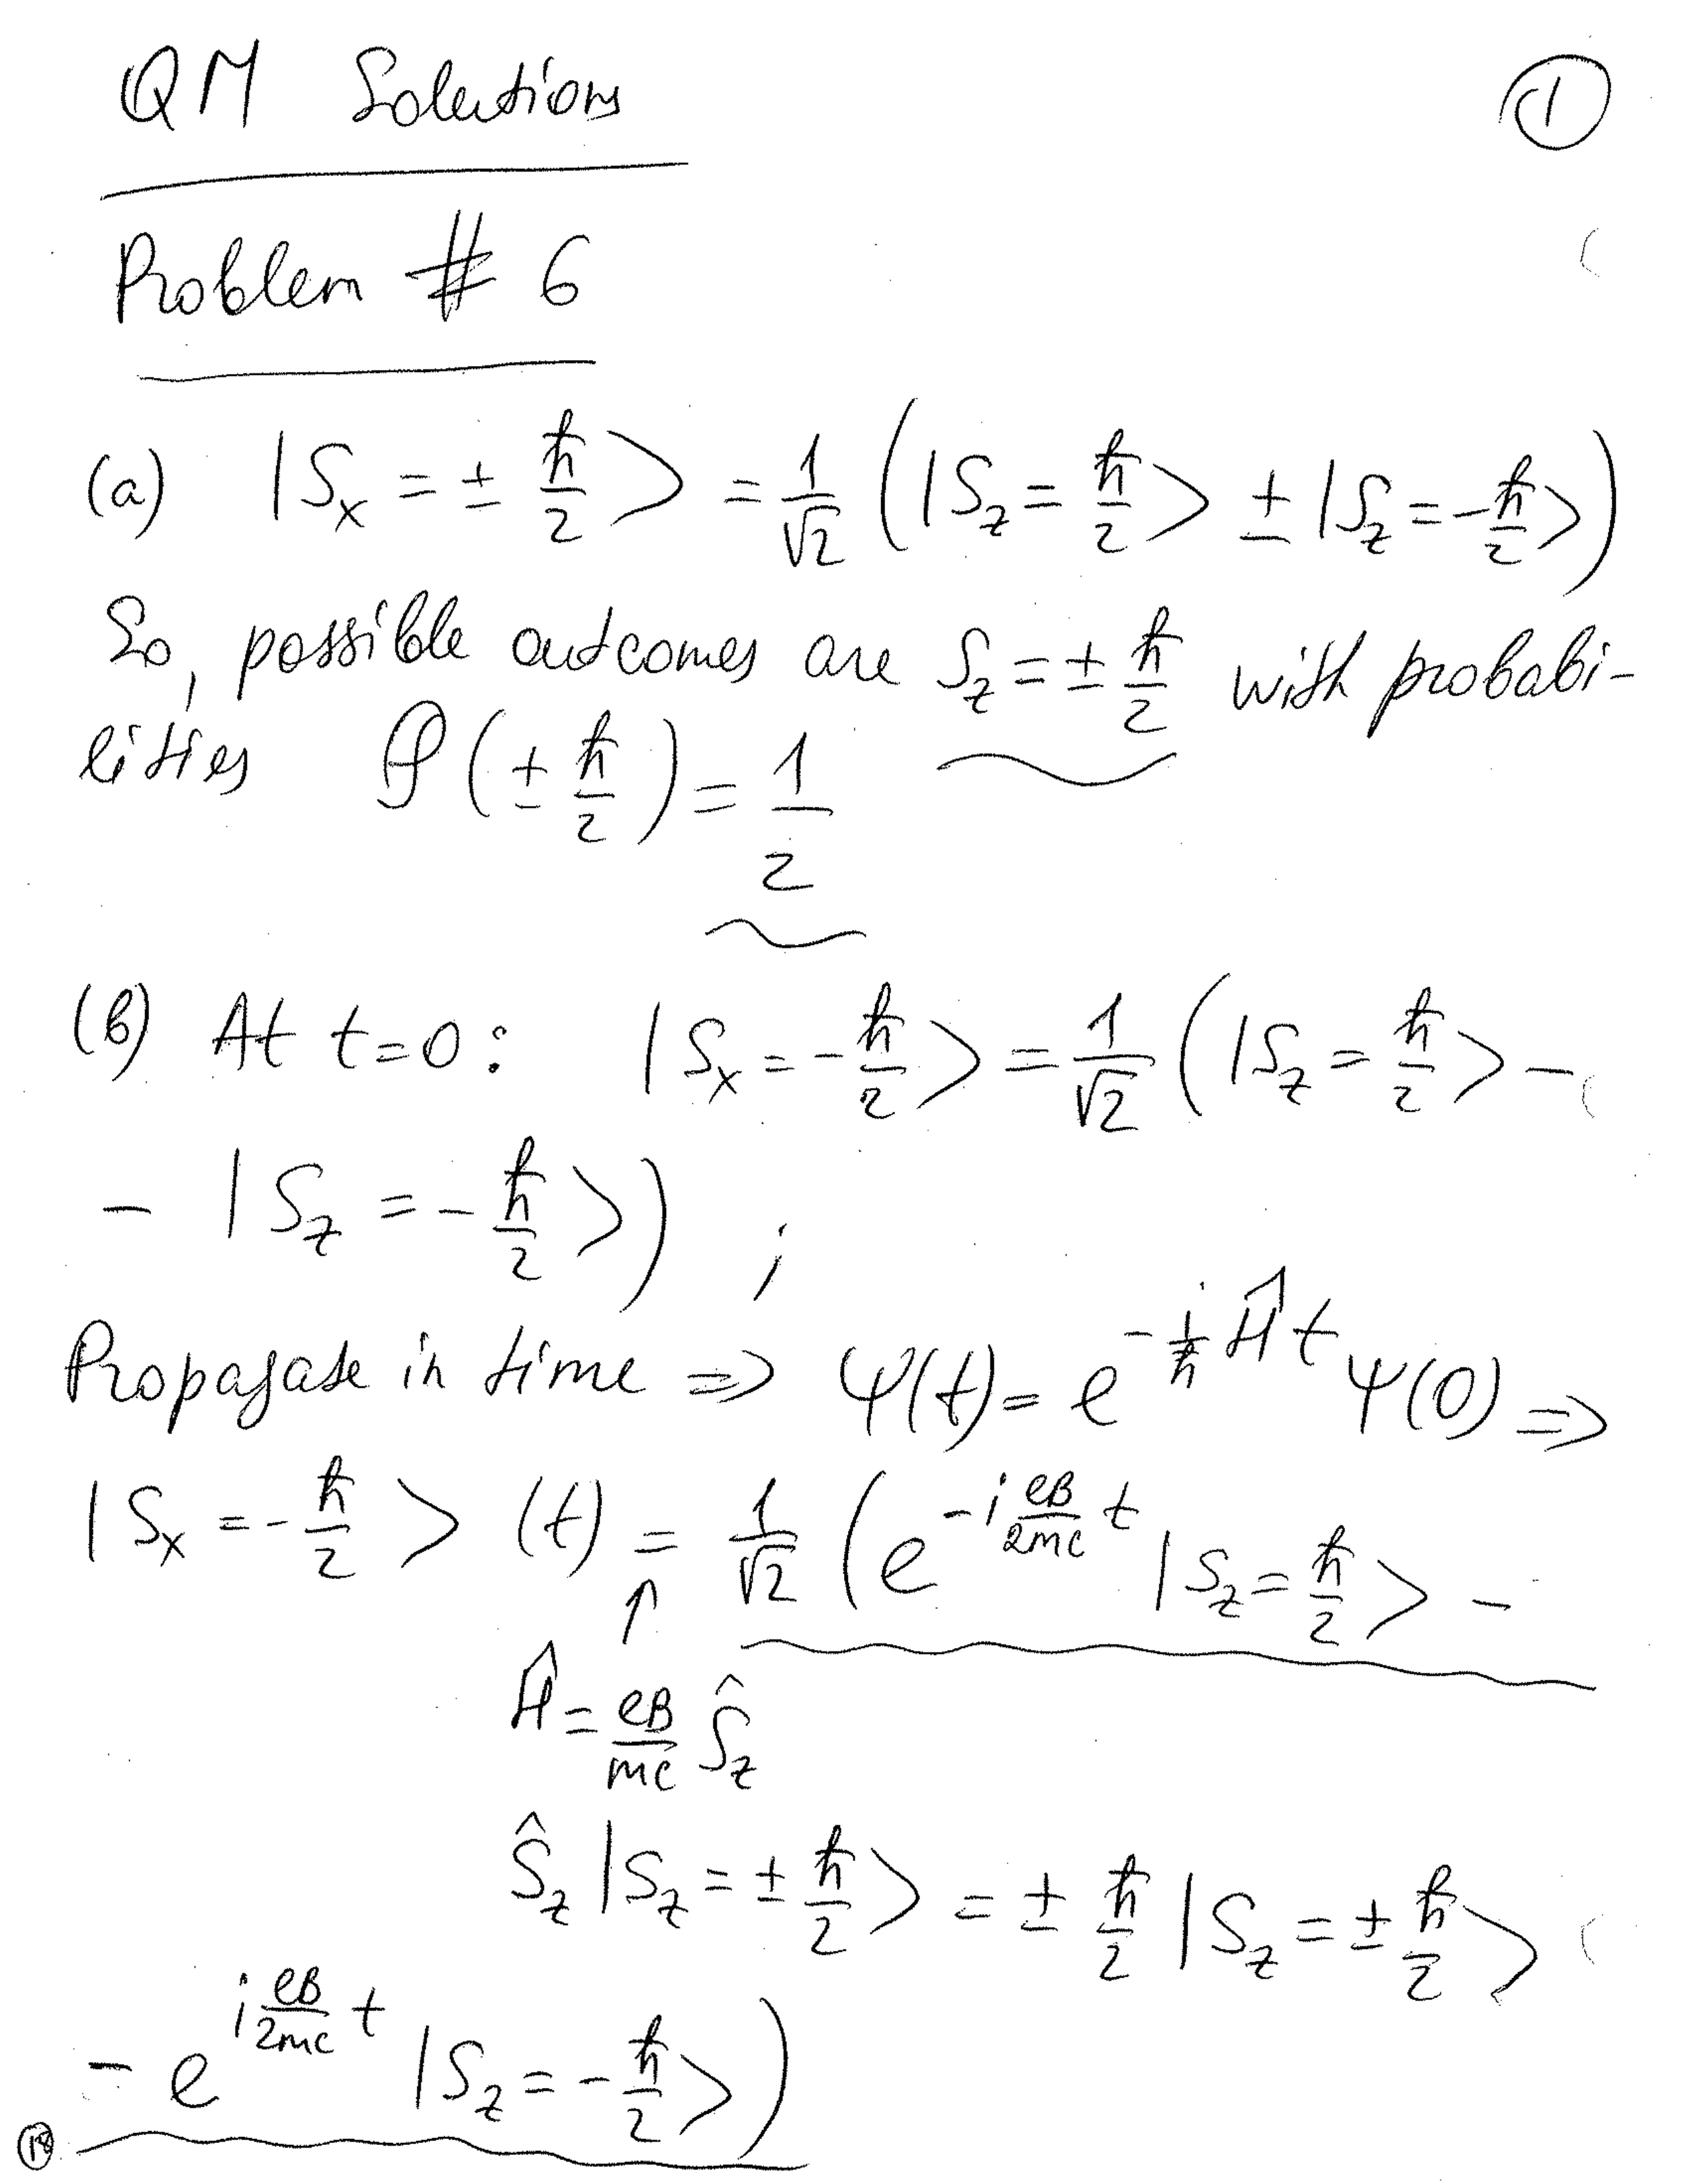 QM Solutions
①
Problem # 6
(a) |S_x = ± ħ/2 > = 1/√2 ( |S_z = ħ/2 > ± |S_z = -ħ/2 > )
So, possible outcomes are S_z = ± ħ/2 with probabi-
lities 𝒫(± ħ/2) = 1/2
(b) At t=0: |S_x = -ħ/2 > = 1/√2 ( |S_z = ħ/2 > -
- |S_z = -ħ/2 > ) ;
Propagate in time => Ψ(t) = e^{-i/ħ Ĥ t} Ψ(0) =>
|S_x = -ħ/2 > (t) = 1/√2 ( e^{-i eB/2mc t} |S_z = ħ/2 > -
↑
Ĥ = eB/mc Ŝ_z
Ŝ_z |S_z = ± ħ/2 > = ± ħ/2 |S_z = ± ħ/2 >
- e^{i eB/2mc t} |S_z = -ħ/2 > )
⑱